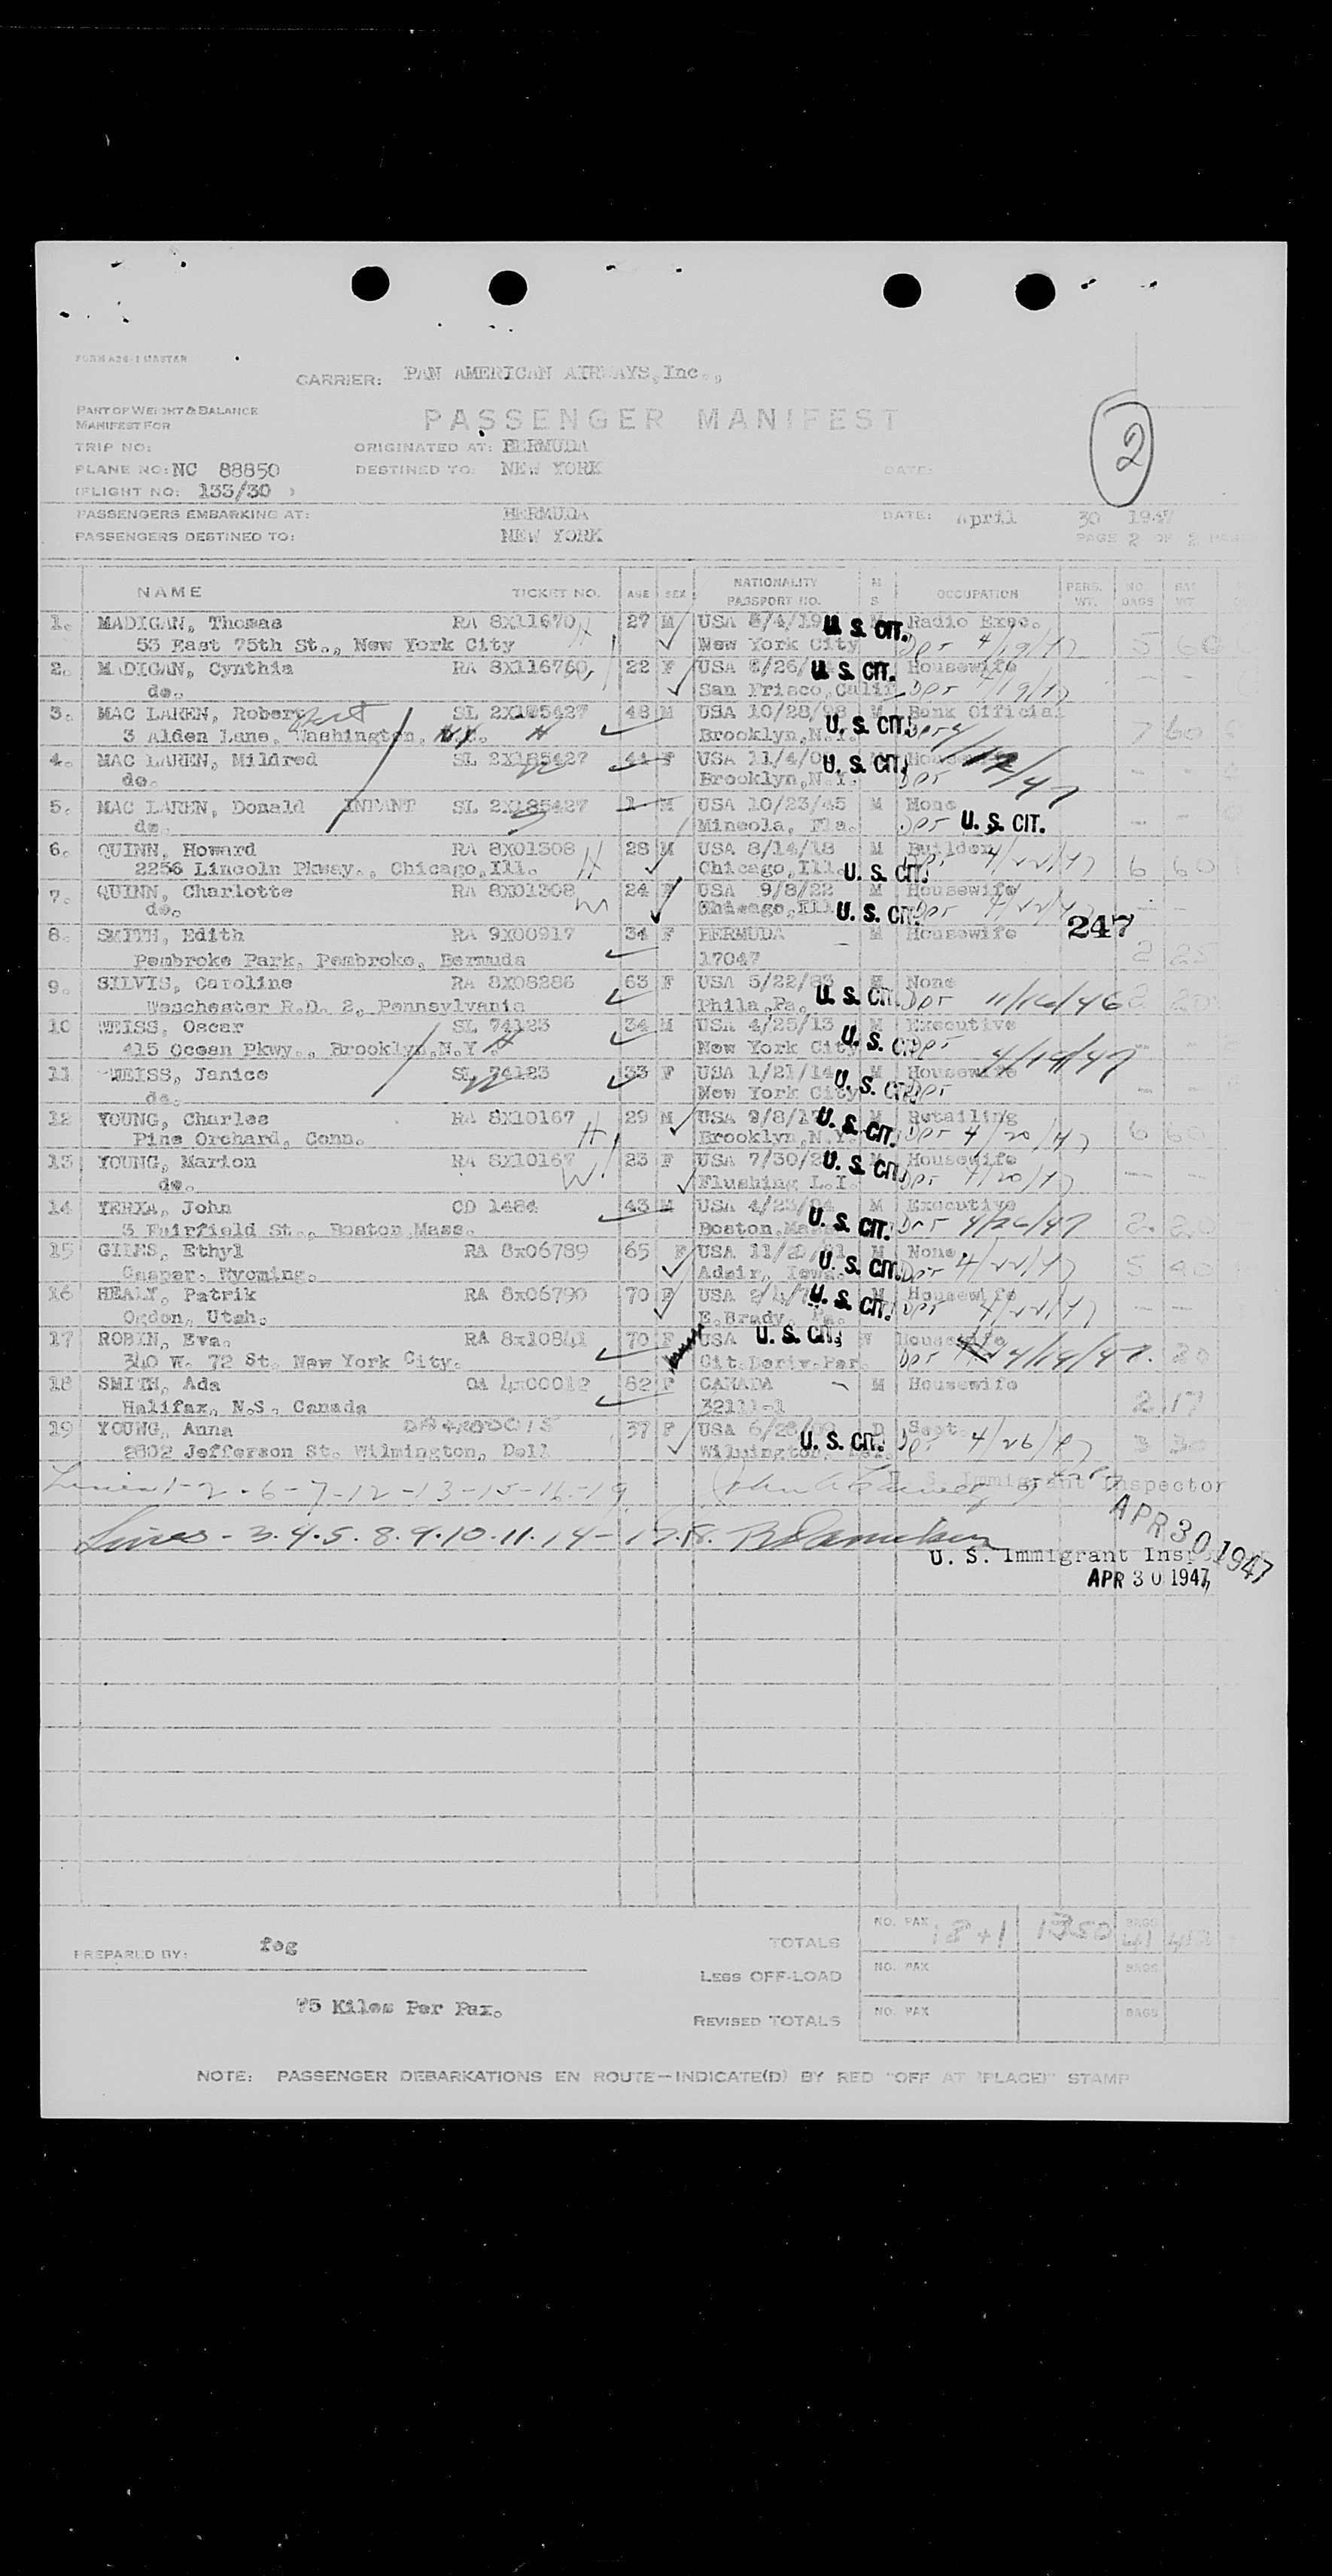 FORM A26-1 MASTER
CARRIER: PAN AMERICAN AIRWAYS, Inc.,
PART OF WEIGHT & BALANCE
MANIFEST FOR
PASSENGER MANIFEST
2
TRIP NO: ORIGINATED AT: BERMUDA
PLANE NO: NC 88850 DESTINED TO: NEW YORK DATE:
(FLIGHT NO: 133/30 )
PASSENGERS EMBARKING AT: BERMUDA DATE: April 30 1947
PASSENGERS DESTINED TO: NEW YORK PAGE 2 OF 2
NAME TICKET NO. AGE SEX NATIONALITY PASSPORT NO. M S OCCUPATION PERS. WT. NO. BAGS BAG WT
1. MADIGAN, Thomas RA 8X11670 27 M USA U. S. CIT. Radio Exec.
53 East 75th St., New York City New York City Dpr 4/19/47 5 60
2. MADIGAN, Cynthia RA 8X11676 22 F USA U. S. CIT. Housewife
do. San Frisco, Calif Dpr 4/19/47
3. MAC LAREN, Robert SL 2X185427 48 M USA 10/28/98 M Bank Official
3 Alden Lane, Washington, Brooklyn, N.Y. U. S. CIT. Dpr 7 60
4. MAC LAREN, Mildred SL 2X185427 44 F USA 11/4/0 U. S. CIT.
do. Brooklyn, N.Y. Dpr 4/17/47
5. MAC LAREN, Donald INFANT SL 2X185427 1 M USA 10/23/45 M None
do. Mineola, Fla. Dpr U. S. CIT.
6. QUINN, Howard RA 8X01308 H 28 M USA 8/14/18 M Builder
2256 Lincoln Pkway., Chicago, Ill. Chicago, Ill. U. S. CIT. Dpr 4/22/47 6 60
7. QUINN, Charlotte RA 8X01308 W 24 F USA 9/8/22 M Housewife
do. Chicago, Ill U. S. CIT. Dpr 4/22/47
247
8. SMITH, Edith RA 9X00917 34 F BERMUDA M Housewife
Pembroke Park, Pembroke, Bermuda 17047 2 25
9. SILVIS, Caroline RA 8X08286 63 F USA 5/22/83 None
Weschester R.D. 2, Pennsylvania Phila, Pa. U. S. CIT. Dpr 11/16/46 2 20
10 WEISS, Oscar SL 74123 34 M USA 4/25/13 M Executive
415 Ocean Pkwy., Brooklyn, N.Y. H New York City U. S. CIT. Dpr 4/19/47
11 WEISS, Janice SL 74123 W 33 F USA 1/21/14 M Housewife
do. New York City U. S. CIT. Dpr
12 YOUNG, Charles RA 8X10167 H 29 M USA 9/8/17 U. S. CIT. M Retailing
Pine Orchard, Conn. Brooklyn, N.Y. Dpr 4/20/47 6 60
13 YOUNG, Marion RA 8X10167 W 23 F USA 7/30/2 U. S. CIT. Housewife
do. Flushing L.I. Dpr 4/20/47
14 YERXA, John CD 1484 43 M USA 4/23/04 M Executive
3 Fairfield St., Boston Mass. Boston, Mass U. S. CIT. Dpr 4/26/47 2 20
15 GILES, Ethyl RA 8x06789 65 F USA 11/2 M None.
Casper, Wyoming. Adair, Iowa. U. S. CIT. Dpr 4/22/47 5 40
16 HEALY, Patrik RA 8x06790 70 F USA U. S. CIT. Housewife
Ogdon, Utah. E. Brady, Pa. Dpr 4/22/47
17 ROBIN, Eva. RA 8x10841 70 F USA U. S. CIT. Housewife
340 W. 72 St. New York City. Cit. Deriv. Par. Dpr 4/19/47. 20
18 SMITH, Ada OA 4x00012 62 F CANADA M Housewife
Halifax, N.S. Canada 32111-1 2 17
19 YOUNG, Anna OA4x00013 37 F USA 6/28/ D Sept.
2802 Jefferson St. Wilmington, Dell Wilmington, Del. U. S. CIT. Dpr 4/26/47 3 30
Lines 1-2-6-7-12-13-15-16-19 U. S. Immigrant Inspector
APR 30 1947
Lines - 3.4.5.8.9.10.11.14-17.18.
U. S. Immigrant Insp
APR 30 1947
PREPARED BY: fog TOTALS NO. PAX 18+1 1350 BAGS 41
LESS OFF-LOAD NO. PAX BAGS
75 Kilos Per Pax. REVISED TOTALS NO. PAX BAGS
NOTE: PASSENGER DEBARKATIONS EN ROUTE—INDICATE(D) BY RED "OFF AT (PLACE)" STAMP